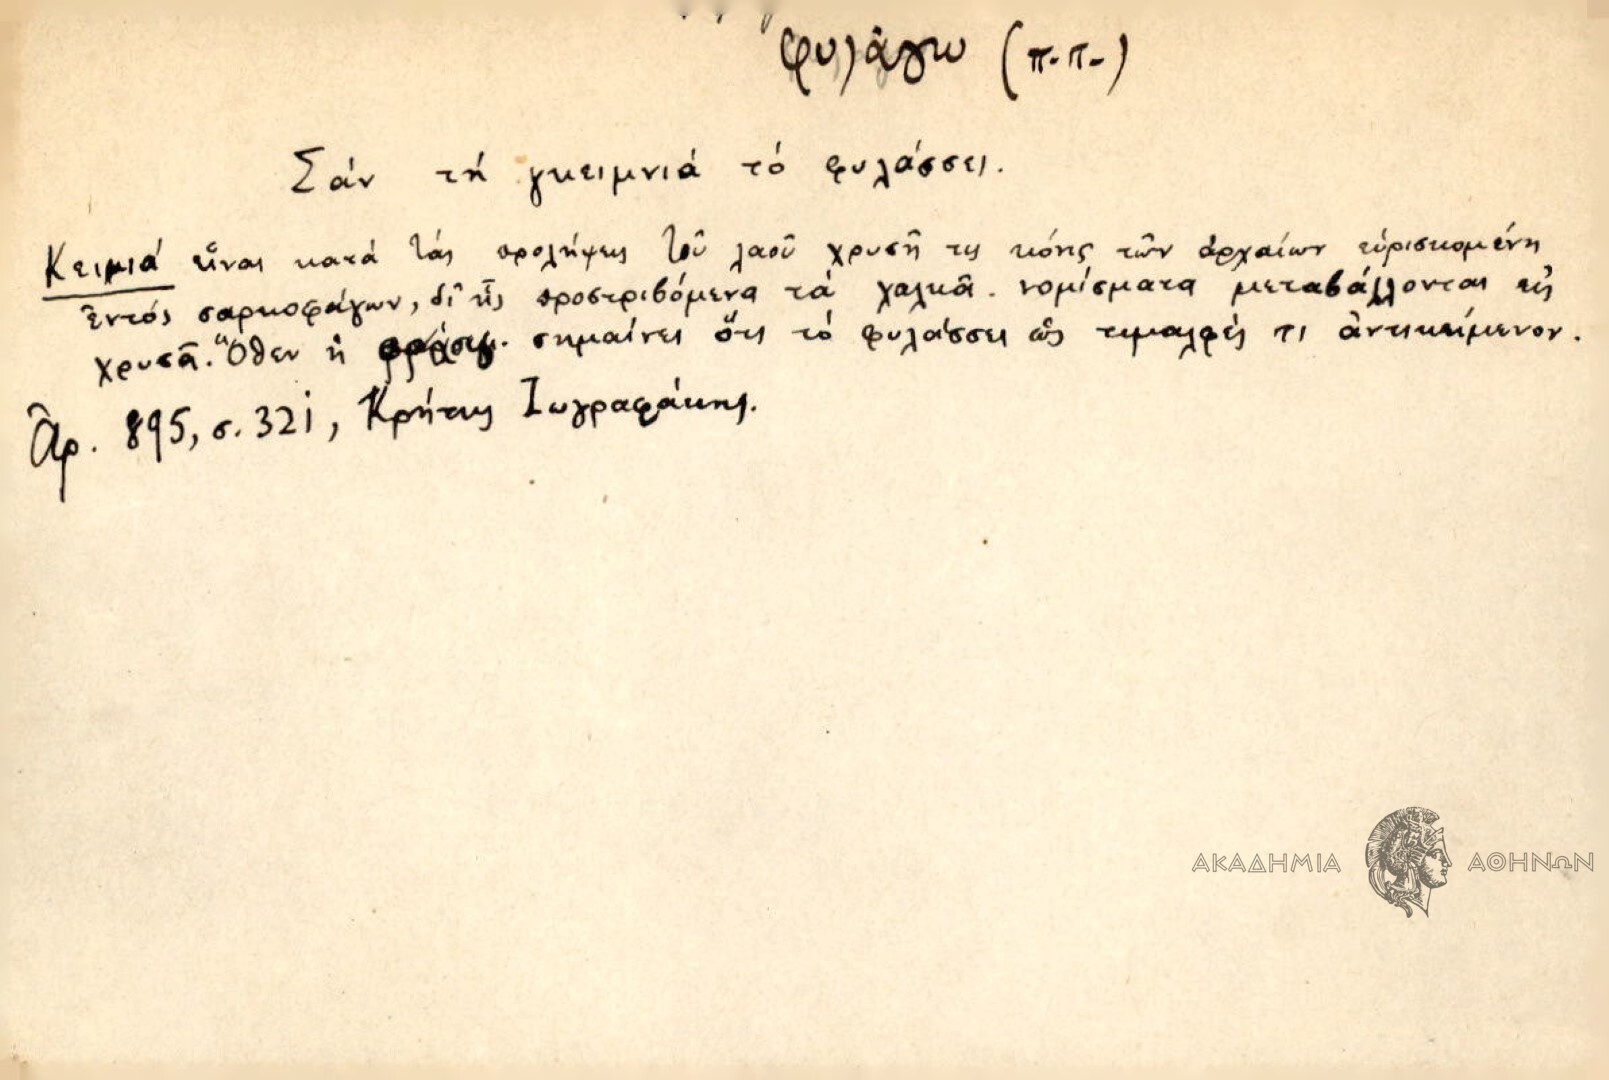 φυλάγω (π.π.)
Σάν τή γκειμνιά τό φυλάσσει.
Κειμιά εἶναι κατά τάς προλήψεις τοῦ λαοῦ χρυσῆ τις κόνις τῶν ἀρχαίων εὑρισκομένη
ἐντός σαρκοφάγων, δι' ἧς προστριβόμενα τά χαλκᾶ νομίσματα μεταβάλλονται εἰς
χρυσᾶ. Ὅθεν ἡ φράσις σημαίνει ὅτι τό φυλάσσει ὡς τιμαλφές τι ἀντικείμενον.
Ἀρ. 895, σ. 321, Κρήτης Ζωγραφάκης.
ΑΚΑΔΗΜΙΑ ΑΘΗΝΩΝ